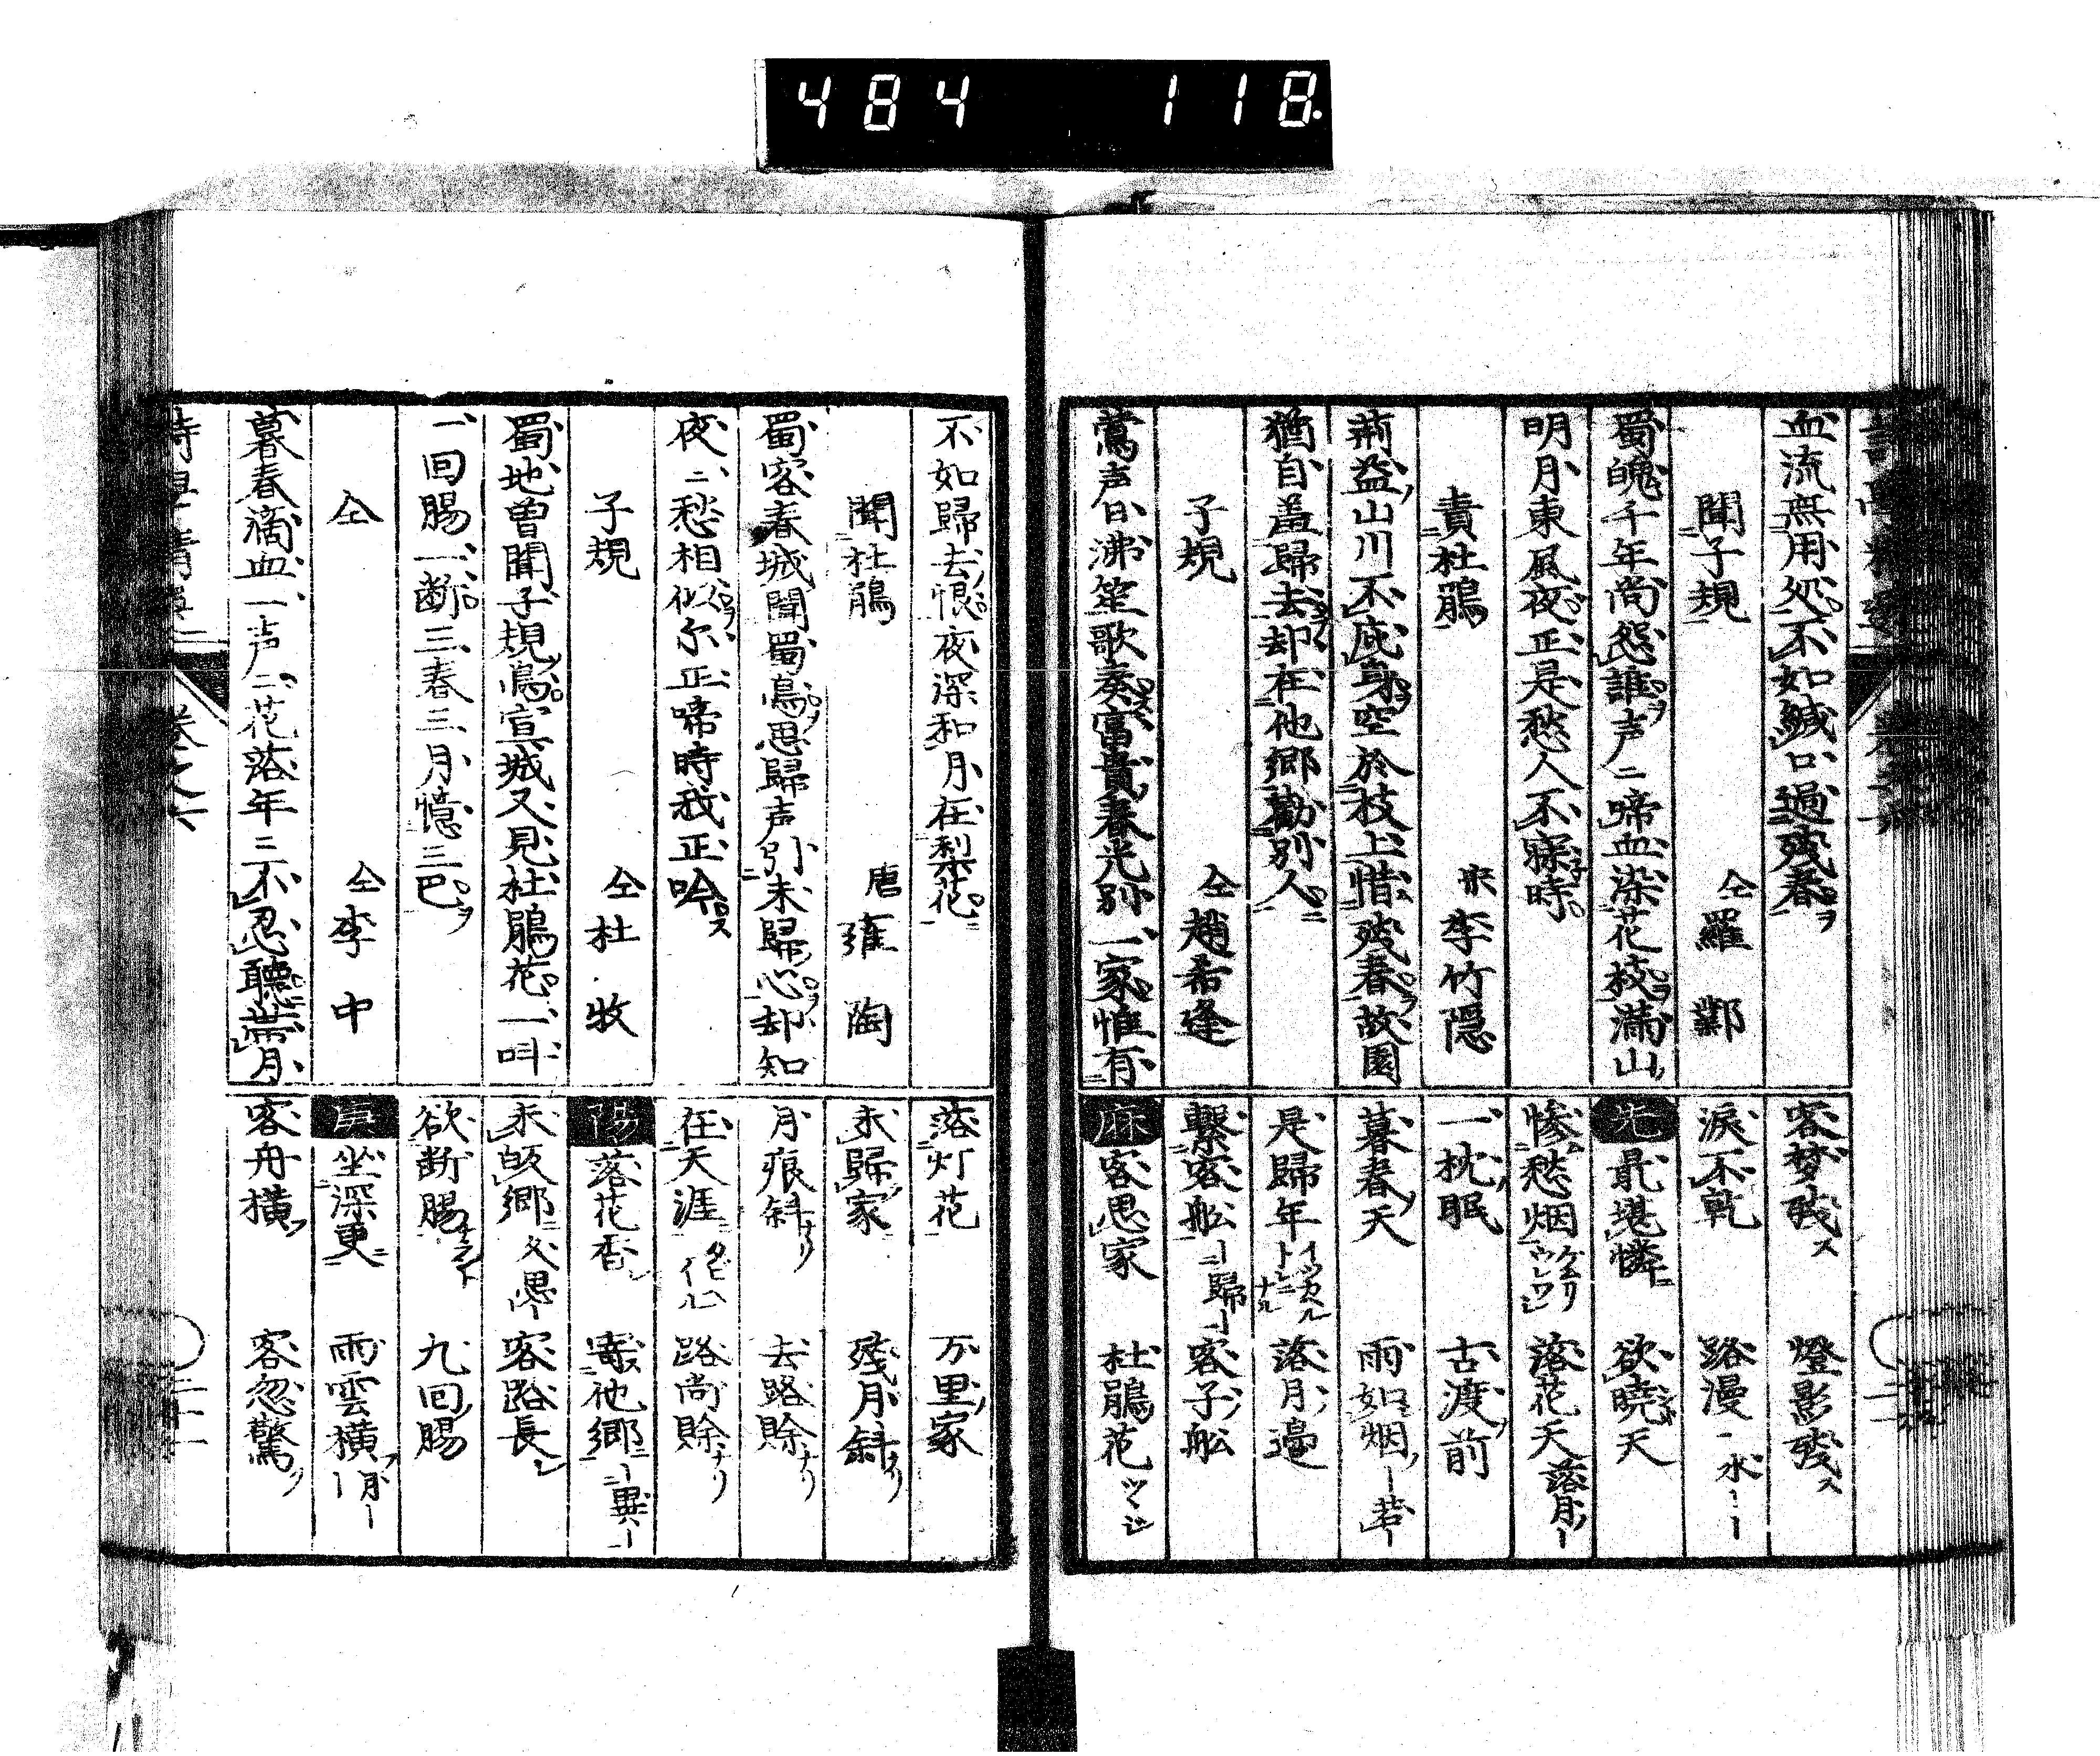 484 118.
血流無用処不如緘口過残春
聞子規 仝羅鄴
蜀魄千年尚怨誰声〻啼血染花枝満山
明月東風夜正是愁人不寐時
責杜鵑 宋李竹隠
荊益山川不庇身空於枝上惜残春故園
猶自盖歸去却在他郷勸別人
子規 仝趙希逢
鶯声日沸笙歌奏富貴春光別一家惟有
客梦残ス 燈影残ス
淚不乾 路漫〻水〻
先 最堪憐 欲曉天
惨愁烟 落花天 落月ー
一枕眠 古渡前
暮春天 雨如烟 ー若ー
是歸年 落月邉
繋客舩 ー歸ー 客子舩
麻 客思家 杜鵑花 ツヽジ
不如歸去恨夜深和月在梨花
聞杜鵑 唐雍陶
蜀客春城聞蜀鳥思歸声引未歸心却知
夜〻愁相似尓正啼時我正吟
子規 仝杜牧
蜀地曽聞子規鳥宣城又見杜鵑花一叫
一回膓一断三春三月憶三巴
仝 仝李中
暮春滴血一声〻花落年〻不忍聽帯月
落灯花 万里家
未歸家 殘月斜
月痕斜 去路賒
在天涯 路尚賒
陽 落花香 寄他郷 ー異ー
未皈郷 客路長
欲断膓 九回膓
庚 坐深更 雨雲横 月ー
客舟横 客忽驚